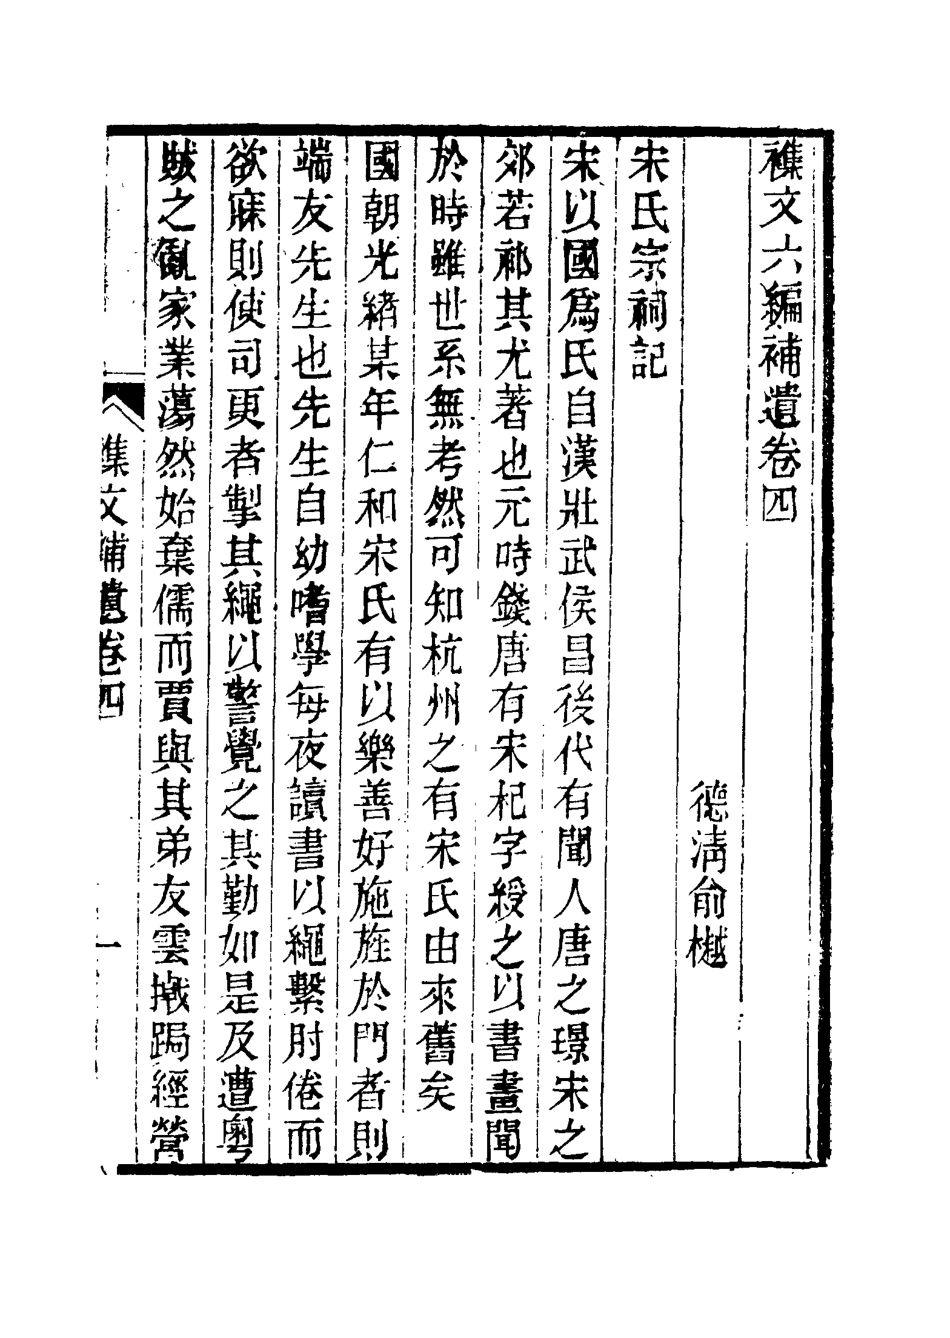 襍文六編補遺卷四
德淸俞樾
宋氏宗祠記
宋以國爲氏自漢壯武侯昌後代有聞人唐之璟宋之
郊若祁其尤著也元時錢唐有宋杞字綬之以書畫聞
於時雖世系無考然可知杭州之有宋氏由來舊矣
國朝光緒某年仁和宋氏有以樂善好施旌於門者則
端友先生也先生自幼嗜學每夜讀書以繩繫肘倦而
欲寐則使司更者掣其繩以警覺之其勤如是及遭粵
賊之亂家業蕩然始棄儒而賈與其弟友雲撠跼經營
集文補遺卷四
一